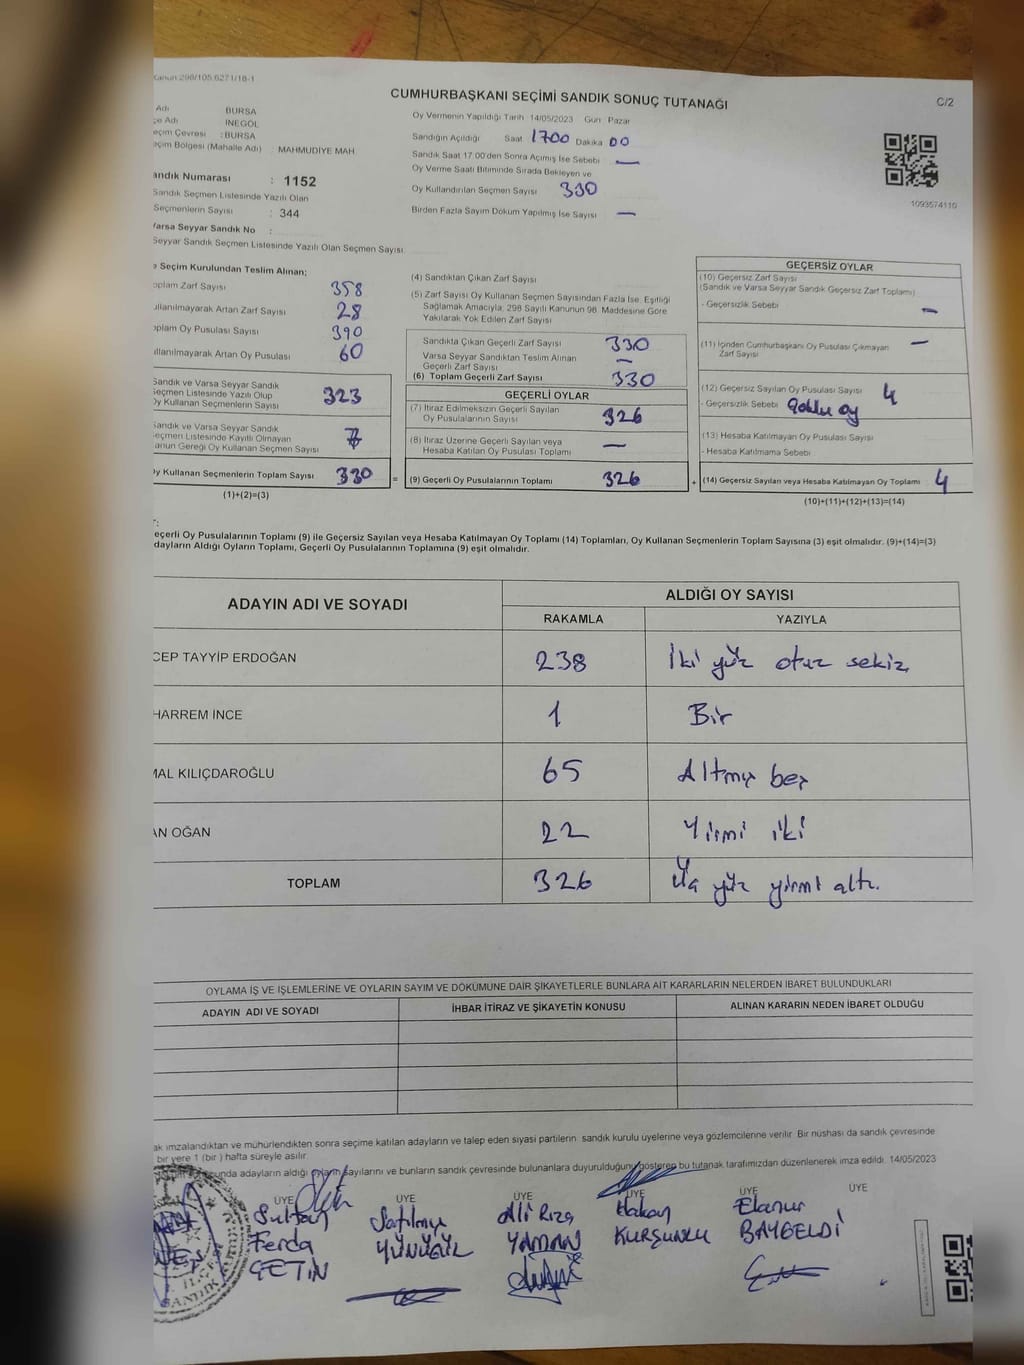 Kanun 298/105,6271/18-1
CUMHURBAŞKANI SEÇİMİ SANDIK SONUÇ TUTANAĞI
C/2
Adı BURSA
çe Adı INEGÖL
eçim Çevresi : BURSA
eçim Bölgesi (Mahalle Adı) : MAHMUDİYE MAH.
andık Numarası : 1152
Sandık Seçmen Listesinde Yazılı Olan
Seçmenlerin Sayısı : 344
Varsa Seyyar Sandık No :
Seyyar Sandık Seçmen Listesinde Yazılı Olan Seçmen Sayısı
Oy Vermenin Yapıldığı Tarih 14/05/2023 Gün Pazar
Sandığın Açıldığı Saat 1700 Dakika 00
Sandık Saat 17.00'den Sonra Açılmış İse Sebebi —
Oy Verme Saati Bitiminde Sırada Bekleyen ve
Oy Kullandırılan Seçmen Sayısı 330
Birden Fazla Sayım Döküm Yapılmış İse Sayısı —
1093574110
e Seçim Kurulundan Teslim Alınan;
oplam Zarf Sayısı 358
ullanılmayarak Artan Zarf Sayısı 28
oplam Oy Pusulası Sayısı 390
ullanılmayarak Artan Oy Pusulası 60
Sandık ve Varsa Seyyar Sandık
Seçmen Listesinde Yazılı Olup
Oy Kullanan Seçmenlerin Sayısı 323
Sandık ve Varsa Seyyar Sandık
Seçmen Listesinde Kayıtlı Olmayan
anun Gereği Oy Kullanan Seçmen Sayısı 7
Oy Kullanan Seçmenlerin Toplam Sayısı 330
(1)+(2)=(3)
(4) Sandıktan Çıkan Zarf Sayısı
(5) Zarf Sayısı Oy Kullanan Seçmen Sayısından Fazla İse, Eşitliği
Sağlamak Amacıyla, 298 Sayılı Kanunun 98. Maddesine Göre
Yakılarak Yok Edilen Zarf Sayısı
Sandıkta Çıkan Geçerli Zarf Sayısı 330
Varsa Seyyar Sandıktan Teslim Alınan
Geçerli Zarf Sayısı —
(6) Toplam Geçerli Zarf Sayısı 330
GEÇERLİ OYLAR
(7) İtiraz Edilmeksizin Geçerli Sayılan
Oy Pusulalarının Sayısı 326
(8) İtiraz Üzerine Geçerli Sayılan veya
Hesaba Katılan Oy Pusulası Toplamı —
= (9) Geçerli Oy Pusulalarının Toplamı 326
GEÇERSİZ OYLAR
(10) Geçersiz Zarf Sayısı
(Sandık ve Varsa Seyyar Sandık Geçersiz Zarf Toplamı)
- Geçersizlik Sebebi —
(11) İçinden Cumhurbaşkanı Oy Pusulası Çıkmayan
Zarf Sayısı —
(12) Geçersiz Sayılan Oy Pusulası Sayısı 4
- Geçersizlik Sebebi Çoklu oy
(13) Hesaba Katılmayan Oy Pusulası Sayısı
- Hesaba Katılmama Sebebi
+ (14) Geçersiz Sayılan veya Hesaba Katılmayan Oy Toplamı 4
(10)+(11)+(12)+(13)=(14)
T:
eçerli Oy Pusulalarının Toplamı (9) ile Geçersiz Sayılan veya Hesaba Katılmayan Oy Toplamı (14) Toplamları, Oy Kullanan Seçmenlerin Toplam Sayısına (3) eşit olmalıdır. (9)+(14)=(3)
dayların Aldığı Oyların Toplamı, Geçerli Oy Pusulalarının Toplamına (9) eşit olmalıdır.
ADAYIN ADI VE SOYADI
ALDIĞI OY SAYISI
RAKAMLA YAZIYLA
CEP TAYYİP ERDOĞAN 238 İki yüz otuz sekiz
HARREM İNCE 1 Bir
MAL KILIÇDAROĞLU 65 Altmış beş
AN OĞAN 22 Yirmi iki
TOPLAM 326 Üç yüz yirmi altı.
OYLAMA İŞ VE İŞLEMLERİNE VE OYLARIN SAYIM VE DÖKÜMÜNE DAİR ŞİKAYETLERLE BUNLARA AİT KARARLARIN NELERDEN İBARET BULUNDUKLARI
ADAYIN ADI VE SOYADI İHBAR İTİRAZ VE ŞİKAYETİN KONUSU ALINAN KARARIN NEDEN İBARET OLDUĞU
ak imzalandıktan ve mühürlendikten sonra seçime katılan adayların ve talep eden siyasi partilerin sandık kurulu üyelerine veya gözlemcilerine verilir. Bir nüshası da sandık çevresinde
bir yere 1 (bir ) hafta süreyle asılır.
unda adayların aldığı oyların sayılarını ve bunların sandık çevresinde bulunanlara duyurulduğunu gösteren bu tutanak tarafımızdan düzenlenerek imza edildi. 14/05/2023
ÜYE ÜYE ÜYE ÜYE ÜYE ÜYE
Sultan Ferda ÇETİN
Satılmış
Ali Rıza YAMAN
Hakan KURŞUNLU
Elanur BAYGELDİ